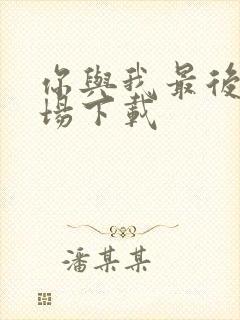 你與我最後
場下載
潘某某